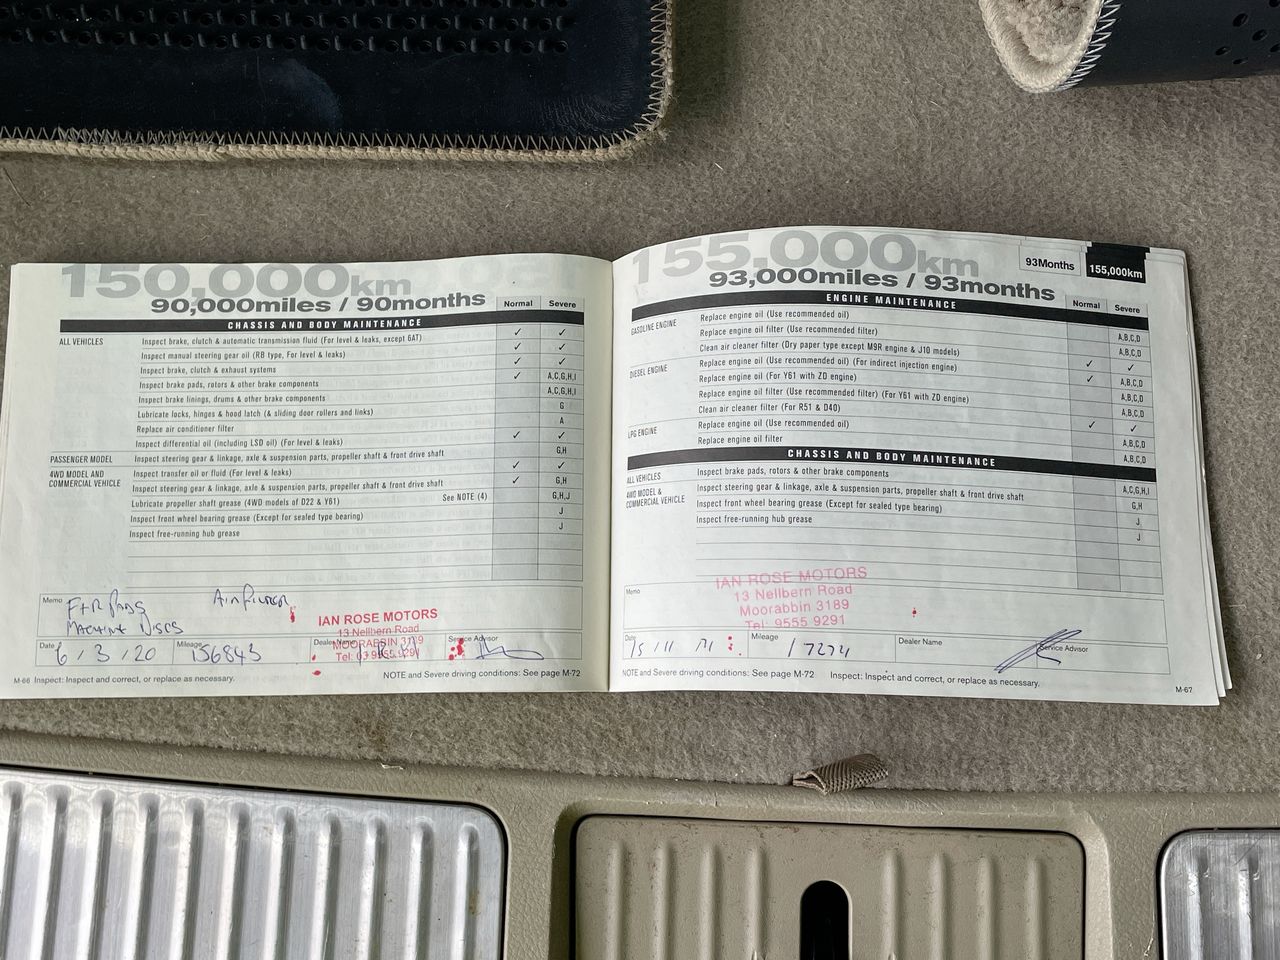 150,000km
90,000miles / 90months
Normal Severe
CHASSIS AND BODY MAINTENANCE
ALL VEHICLES Inspect brake, clutch & automatic transmission fluid (For level & leaks, except 6AT) ✓ ✓
Inspect manual steering gear oil (RB type, For level & leaks) ✓ ✓
Inspect brake, clutch & exhaust systems ✓ ✓
Inspect brake pads, rotors & other brake components ✓ A,C,G,H,I
Inspect brake linings, drums & other brake components A,C,G,H,I
Lubricate locks, hinges & hood latch (& sliding door rollers and links) G
Replace air conditioner filter A
Inspect differential oil (including LSD oil) (For level & leaks) ✓ ✓
PASSENGER MODEL Inspect steering gear & linkage, axle & suspension parts, propeller shaft & front drive shaft G,H
4WD MODEL AND COMMERCIAL VEHICLE Inspect transfer oil or fluid (For level & leaks) ✓ ✓
Inspect steering gear & linkage, axle & suspension parts, propeller shaft & front drive shaft ✓ G,H
Lubricate propeller shaft grease (4WD models of D22 & Y61) See NOTE (4) G,H,J
Inspect front wheel bearing grease (Except for sealed type bearing) J
Inspect free-running hub grease J
Memo F+R PADS AIR FILTER
MACHINE DISCS
IAN ROSE MOTORS
13 Nellbern Road
MOORABBIN 3189
Tel: 03 9555 9291
Date 6 / 3 / 20 Mileage 156843 Dealer Name Service Advisor
M-66 Inspect: Inspect and correct, or replace as necessary. NOTE and Severe driving conditions: See page M-72
155,000km
93,000miles / 93months
93Months 155,000km
Normal Severe
ENGINE MAINTENANCE
GASOLINE ENGINE Replace engine oil (Use recommended oil) A,B,C,D
Replace engine oil filter (Use recommended filter) A,B,C,D
Clean air cleaner filter (Dry paper type except M9R engine & J10 models) ✓
DIESEL ENGINE Replace engine oil (Use recommended oil) (For indirect injection engine) ✓ A,B,C,D
Replace engine oil (For Y61 with ZD engine) ✓ A,B,C,D
Replace engine oil filter (Use recommended filter) (For Y61 with ZD engine) A,B,C,D
Clean air cleaner filter (For R51 & D40) ✓
LPG ENGINE Replace engine oil (Use recommended oil) ✓ A,B,C,D
Replace engine oil filter A,B,C,D
CHASSIS AND BODY MAINTENANCE
ALL VEHICLES Inspect brake pads, rotors & other brake components A,C,G,H,I
4WD MODEL & COMMERCIAL VEHICLE Inspect steering gear & linkage, axle & suspension parts, propeller shaft & front drive shaft G,H
Inspect front wheel bearing grease (Except for sealed type bearing) J
Inspect free-running hub grease J
Memo
IAN ROSE MOTORS
13 Nellbern Road
Moorabbin 3189
Tel: 9555 9291
Date 15 / 11 / 21 Mileage Dealer Name Service Advisor
NOTE and Severe driving conditions: See page M-72 Inspect: Inspect and correct, or replace as necessary. M-67